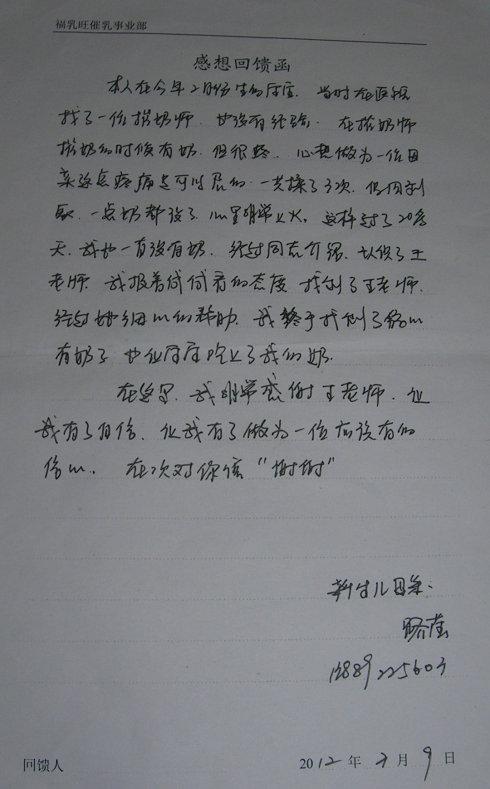 福乳旺催乳事业部
感想回馈函
本人在今年2月份生的宝宝. 当时在医院
找了一位揉奶师. 也没有经验. 在揉奶师
揉奶的时候有奶. 但很疼. 心想做为一位母
亲这点疼痛是可以忍的. 一共揉了3次. 但回到
家. 一点奶都没了. 心里非常上火. 这样过了20多
天. 我也一直没有奶. 经过同志介绍. 认识了王
老师. 我报着试试看的态度. 找到了王老师.
经过她细心的帮助. 我终于找到了信心
有奶了 也让宝宝吃上了我的奶.
在这里. 我非常感谢王老师. 让
我有了自信. 让我有了做为一位应该有的
信心. 在次对你说“谢谢”
新生儿母亲.
13889225603
回馈人
2012 年 3 月 9 日